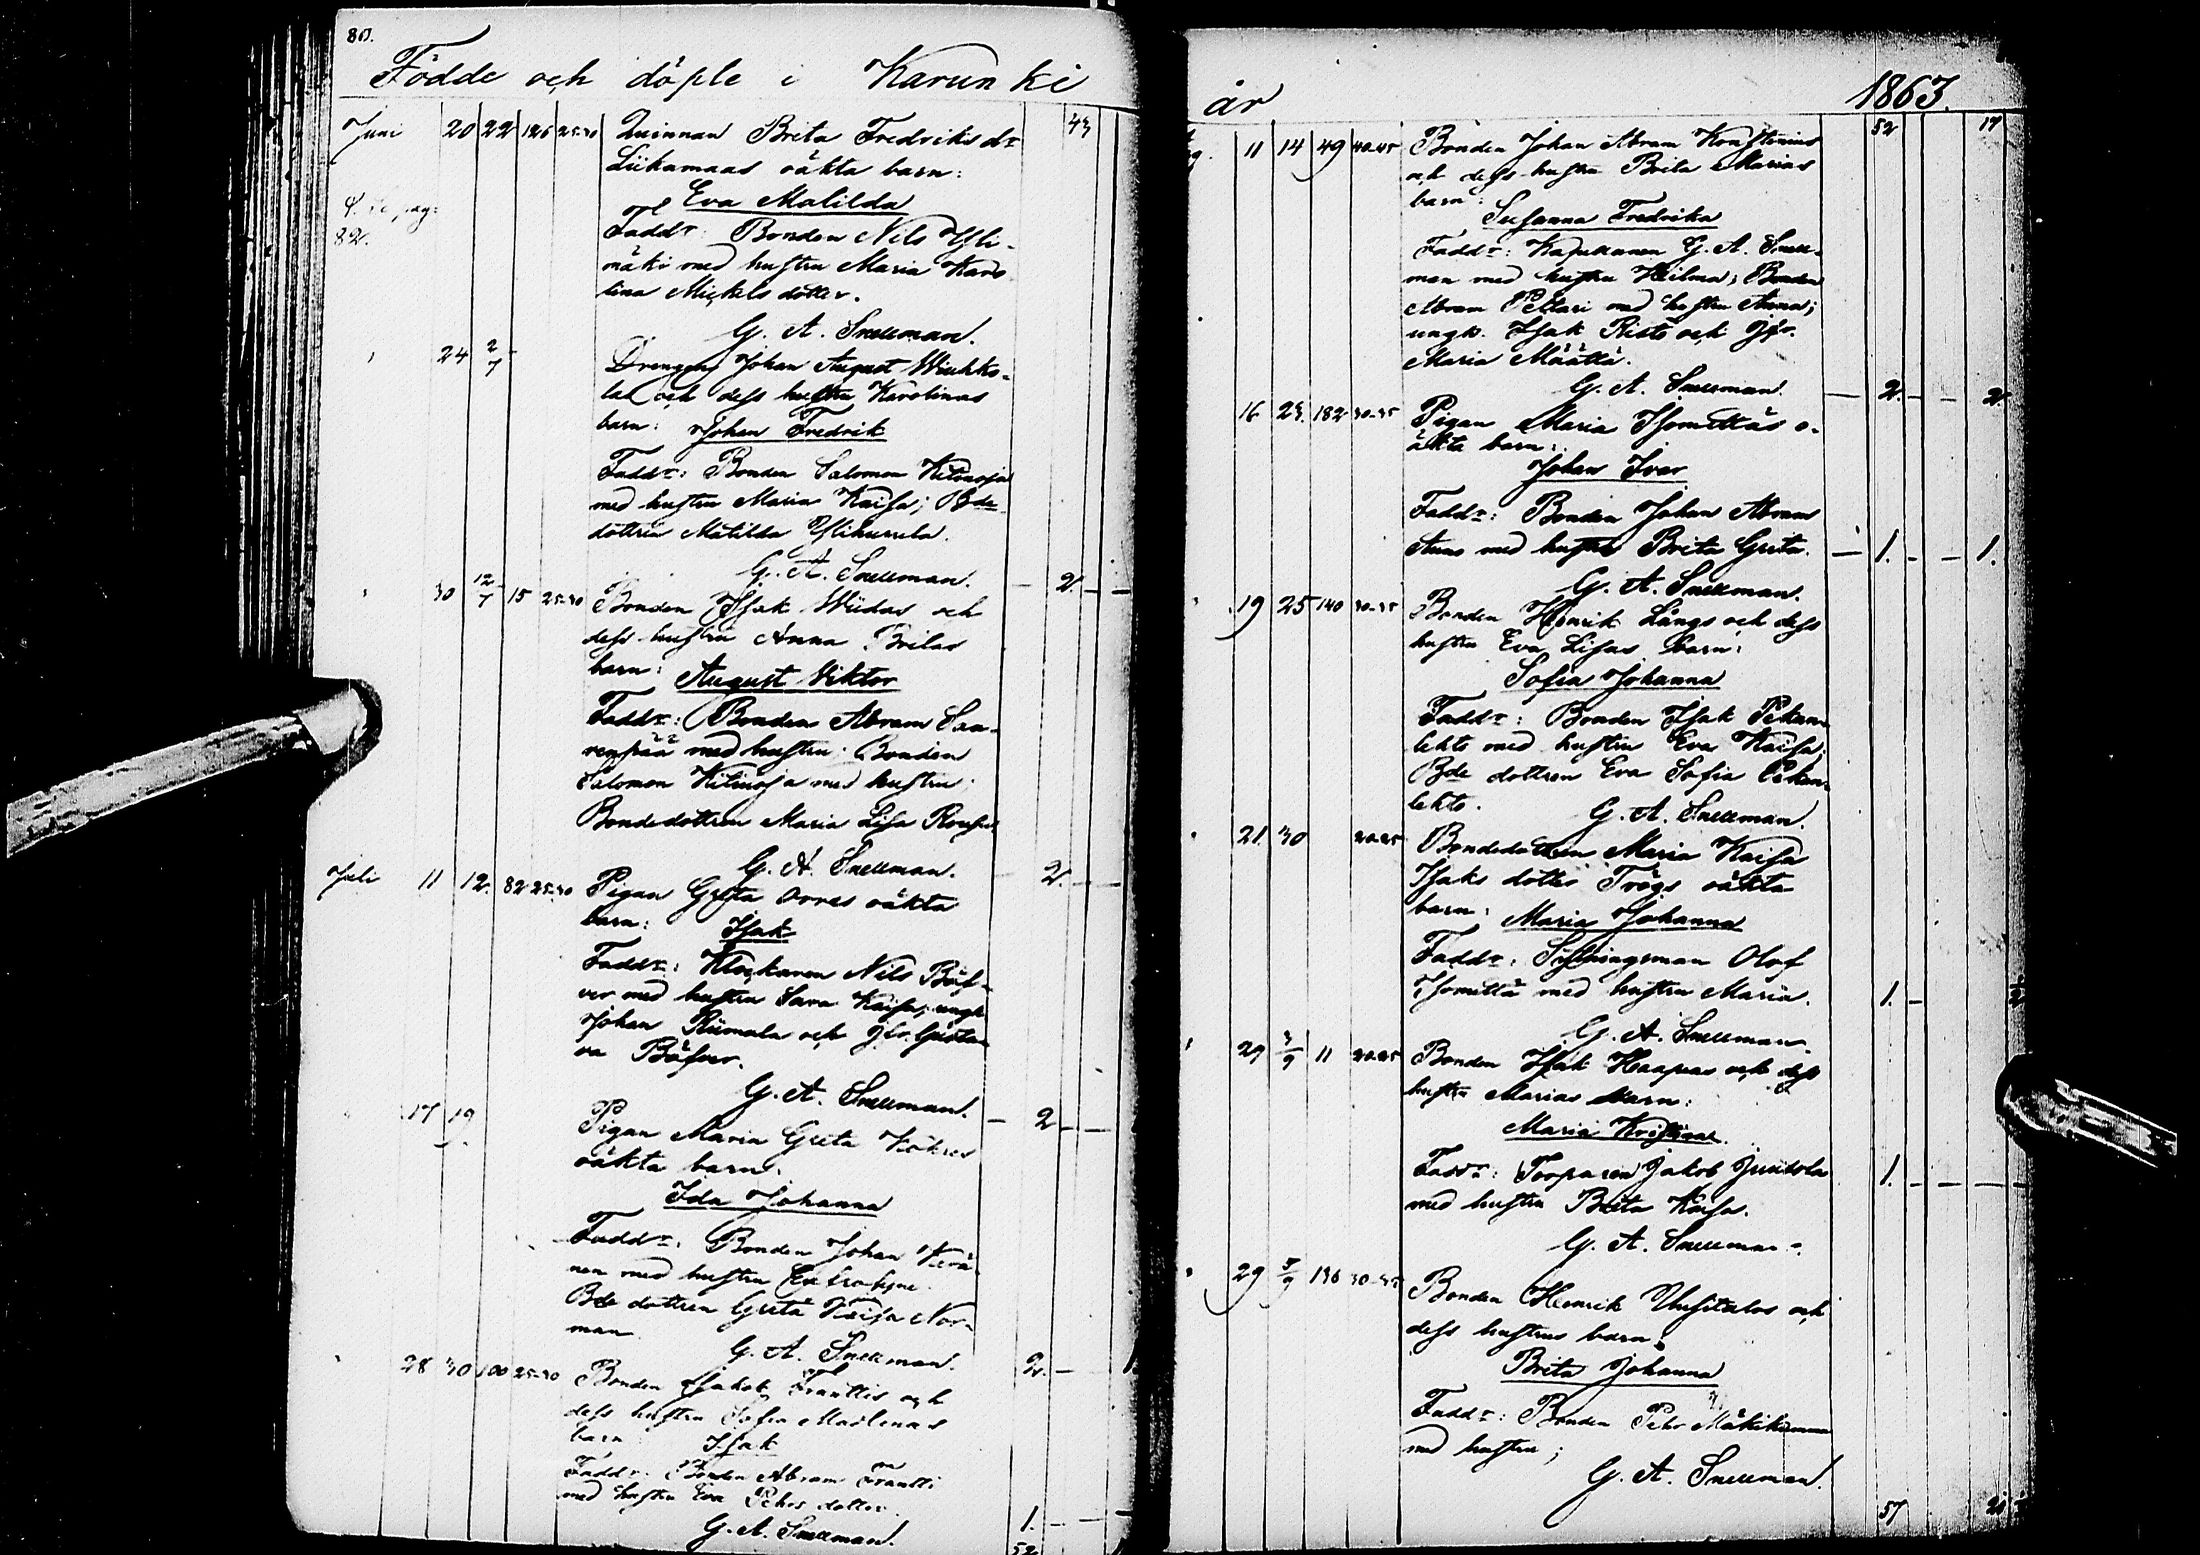 80.
Födde och döpte i Karunki
Juni 20 22 126 25-30 Qvinnan Brita Fredriks dr 43
Liikamaas oäkta barn:
Eva Matilda
pag:
82.
Faddr: Bonden Nils Yli-
mäki med hustru Maria Karo
lina Mickels dotter.
G. A. Snellman.
24 2/7 Drengen Johan August
la och dess hustru Karolinas
barn: Johan Fredrik
Faddr: Bonden Salomon Kitinoja
med hustru Maria Kaisa; Bde
dottren Matilda Ylikurula.
G. A. Snellman. — 2. — —
30 12/7 15 25-30 Bonden Isak Wiidas och
dess hustru Anna Britas
barn: August Viktor
Faddr: Bonden Abram Saa-
renpää med hustru; Bonden
Salomon Kitinoja med hustru;
Bondedottren Maria Lisa
G. A. Snellman. — 2. — —
Juli 11 12. 82 25-30 Pigan Greta Orres oäkta
barn: Isak
Faddr: Klockaren Nils Bäf-
ver med hustru Sara Kaisa; ungk
Johan Riimala och Jfr. Gusta
va Bäfver.
G. A. Snellman. — 2 — —
17 19 Pigan Maria Greta
oäkta barn:
Ida Johanna
Faddr: Bonden Johan Kerä-
nen med hustru
Bde dottren Greta Kaisa Nor-
man
G. A. Snellman. 2. —
28 30 100 25-30 Bonden Isak Franttis och
dess hustru Sofia Madlenas
barn Isak
Faddr: Bonden Abram Frantti
med hustru Eva Pehrs dotter.
G. A. Snellman. 1. — —
52
år 1863.
11 14 49 40-45 Bonden Johan Abram Konstenius 52 17
och dess hustru Brita Marias
barn:
Susanna Fredrika
Faddr: Kapellanen G. A. Snell-
man med hustru Hilma; Bonden
Abram Pessari med hustru Anna;
ungk. Isak Risto och Jfr.
Maria Määttä.
G. A. Snellman. — 2 — — 2
16 23. 182 30-35 Pigan Maria Isomettäs o-
äkta barn:
Johan Ivar
Faddr: Bonden Johan Abram
med hustru Brita Greta. — 1. — — 1.
G. A. Snellman.
19 25 140 30-35 Bonden Henrik Långs och dess
hustru Eva Lisas barn:
Sofia Johanna
Faddr: Bonden Isak Pekan-
lehto med hustru Eva Kaisa;
Bde dottren Eva Sofia Pekan-
lehto.
G. A. Snellman.
21 30 20-25 Bondedottren Maria Kaisa
Isaks dotter Trögs oäkta
barn: Maria Johanna
Faddr: Sexmingsman Olof
Isomettä med hustru Maria. 1. —
G. A. Snellman.
29 3/9 11 20-25 Bonden Isak Haapas och dess
hustru Marias barn:
Maria Kristina.
Faddr: Torparen Jakob Juntola 1. — — —
med hustru Brita Kaisa.
G. A. Snellman.
29 5/9 136 30-35 Bonden Henrik Uusitalos och
dess hustrus barn:
Brita Johanna
Faddr: Bonden Pehr
med hustru;
G. A. Snellman.
57